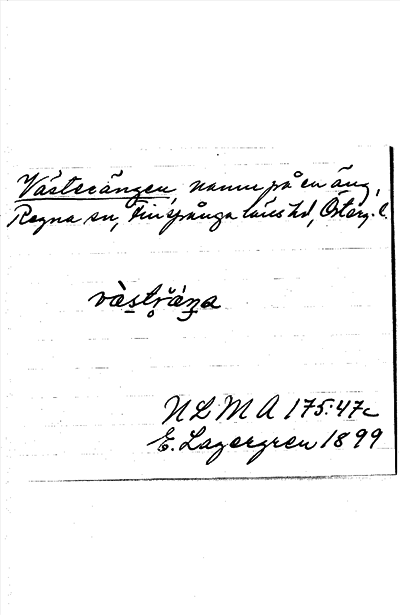 Västerängen, namn på en äng,
Regna sn, Finspånga läns hd, Österg. l.
västr̥áŋa
N L M A 175:47c
E. Lagergren 1899